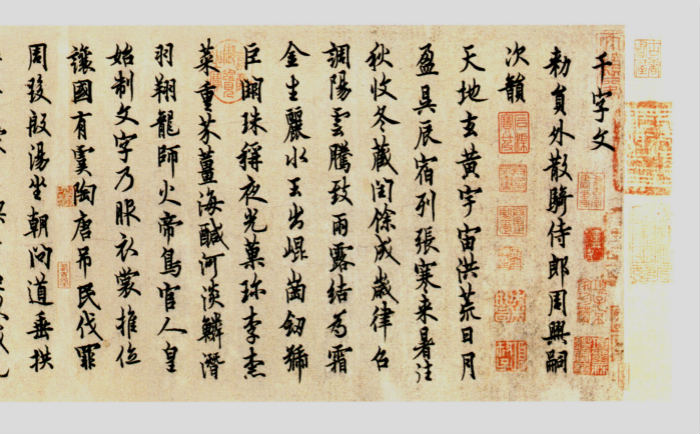 千字文
勑員外散騎侍郎周興嗣
次韻
天地玄黃宇宙洪荒日月
盈昃辰宿列張寒来暑往
秋收冬藏閏餘成歲律召
調陽雲騰致雨露結為霜
金生麗水玉出崐崗劒號
巨闕珠稱夜光菓珎李柰
菜重芥薑海鹹河淡鱗潛
羽翔龍師火帝鳥官人皇
始制文字乃服衣裳推位
讓國有虞陶唐吊民伐罪
周發殷湯坐朝問道垂拱